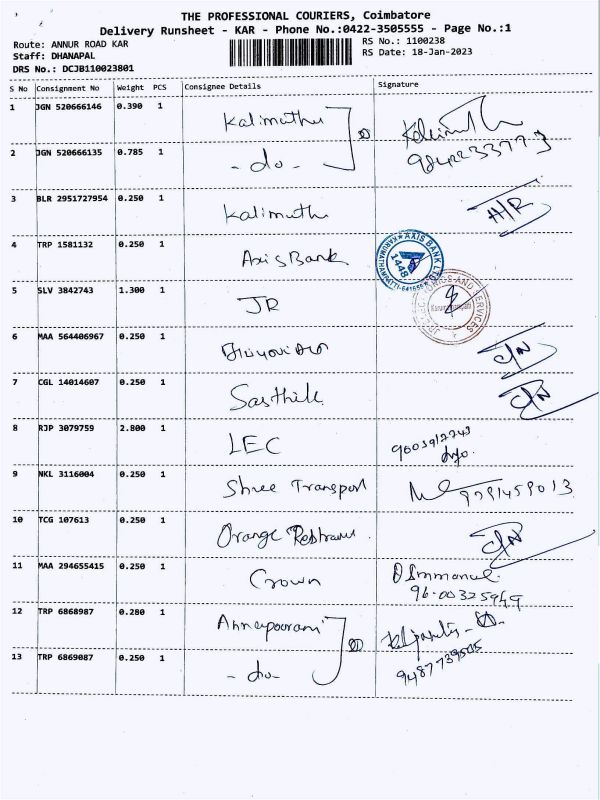 THE PROFESSIONAL COURIERS, Coimbatore
Delivery Runsheet - KAR - Phone No.:0422-3505555 - Page No.:1
Route: ANNUR ROAD KAR
RS No.: 1100238
Staff: DHANAPAL
RS Date: 18-Jan-2023
DRS No.: DCJB110023801
S No Consignment No Weight PCS Consignee Details Signature
1 JGN 520666146 0.390 1 Kalimuthu
2 JGN 520666135 0.785 1 - do -
3 BLR 2951727954 0.250 1 Kalimuthu H/R
4 TRP 1581132 0.250 1 Axis Bank AXIS BANK LTD 1448
5 SLV 3842743 1.300 1 JR
6 MAA 564406967 0.250 1 C/N
7 CGL 14014607 0.250 1 C/N
8 RJP 3079759 2.800 1 LEC
9 NKL 3116004 0.250 1 Shree Transport 9791459013
10 TCG 107613 0.250 1 Orange C/N
11 MAA 294655415 0.250 1 Crown
12 TRP 6868987 0.280 1 Annapoorani
13 TRP 6869087 0.250 1 - do -